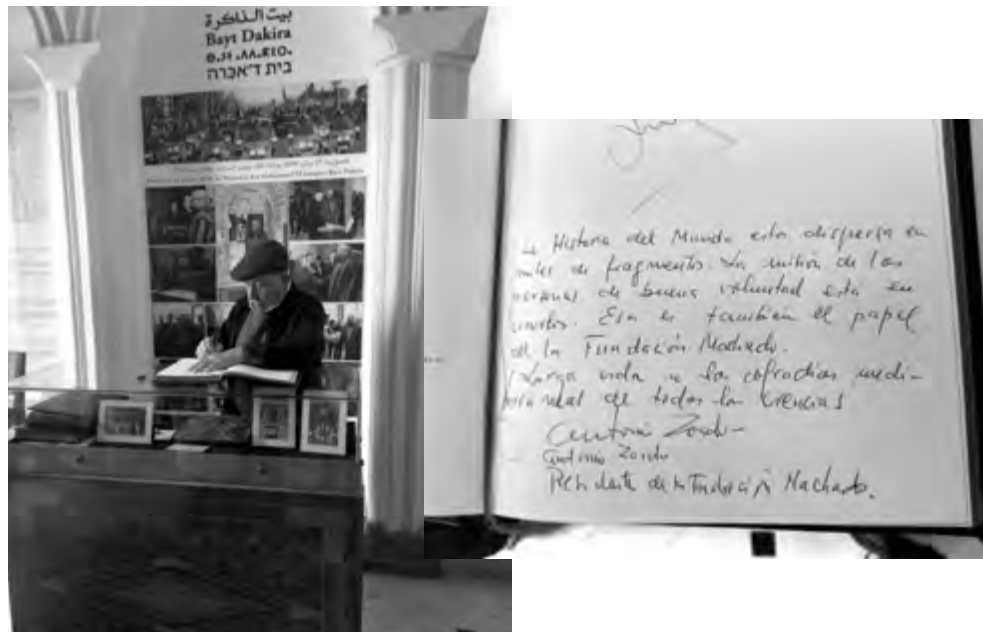 بيت الذاكرة
Bayt Dakira
בית ד'אכרה
La Historia del Mundo está dispersa en
miles de fragmentos. La misión de las
personas de buena voluntad está en
unirlos. Esa es también el papel
de la Fundación Machado.
¡Larga vida a las cofradías medi-
terráneas de todas las creencias!
Antonio Zoido
Antonio Zoido
Presidente de la Fundación Machado.